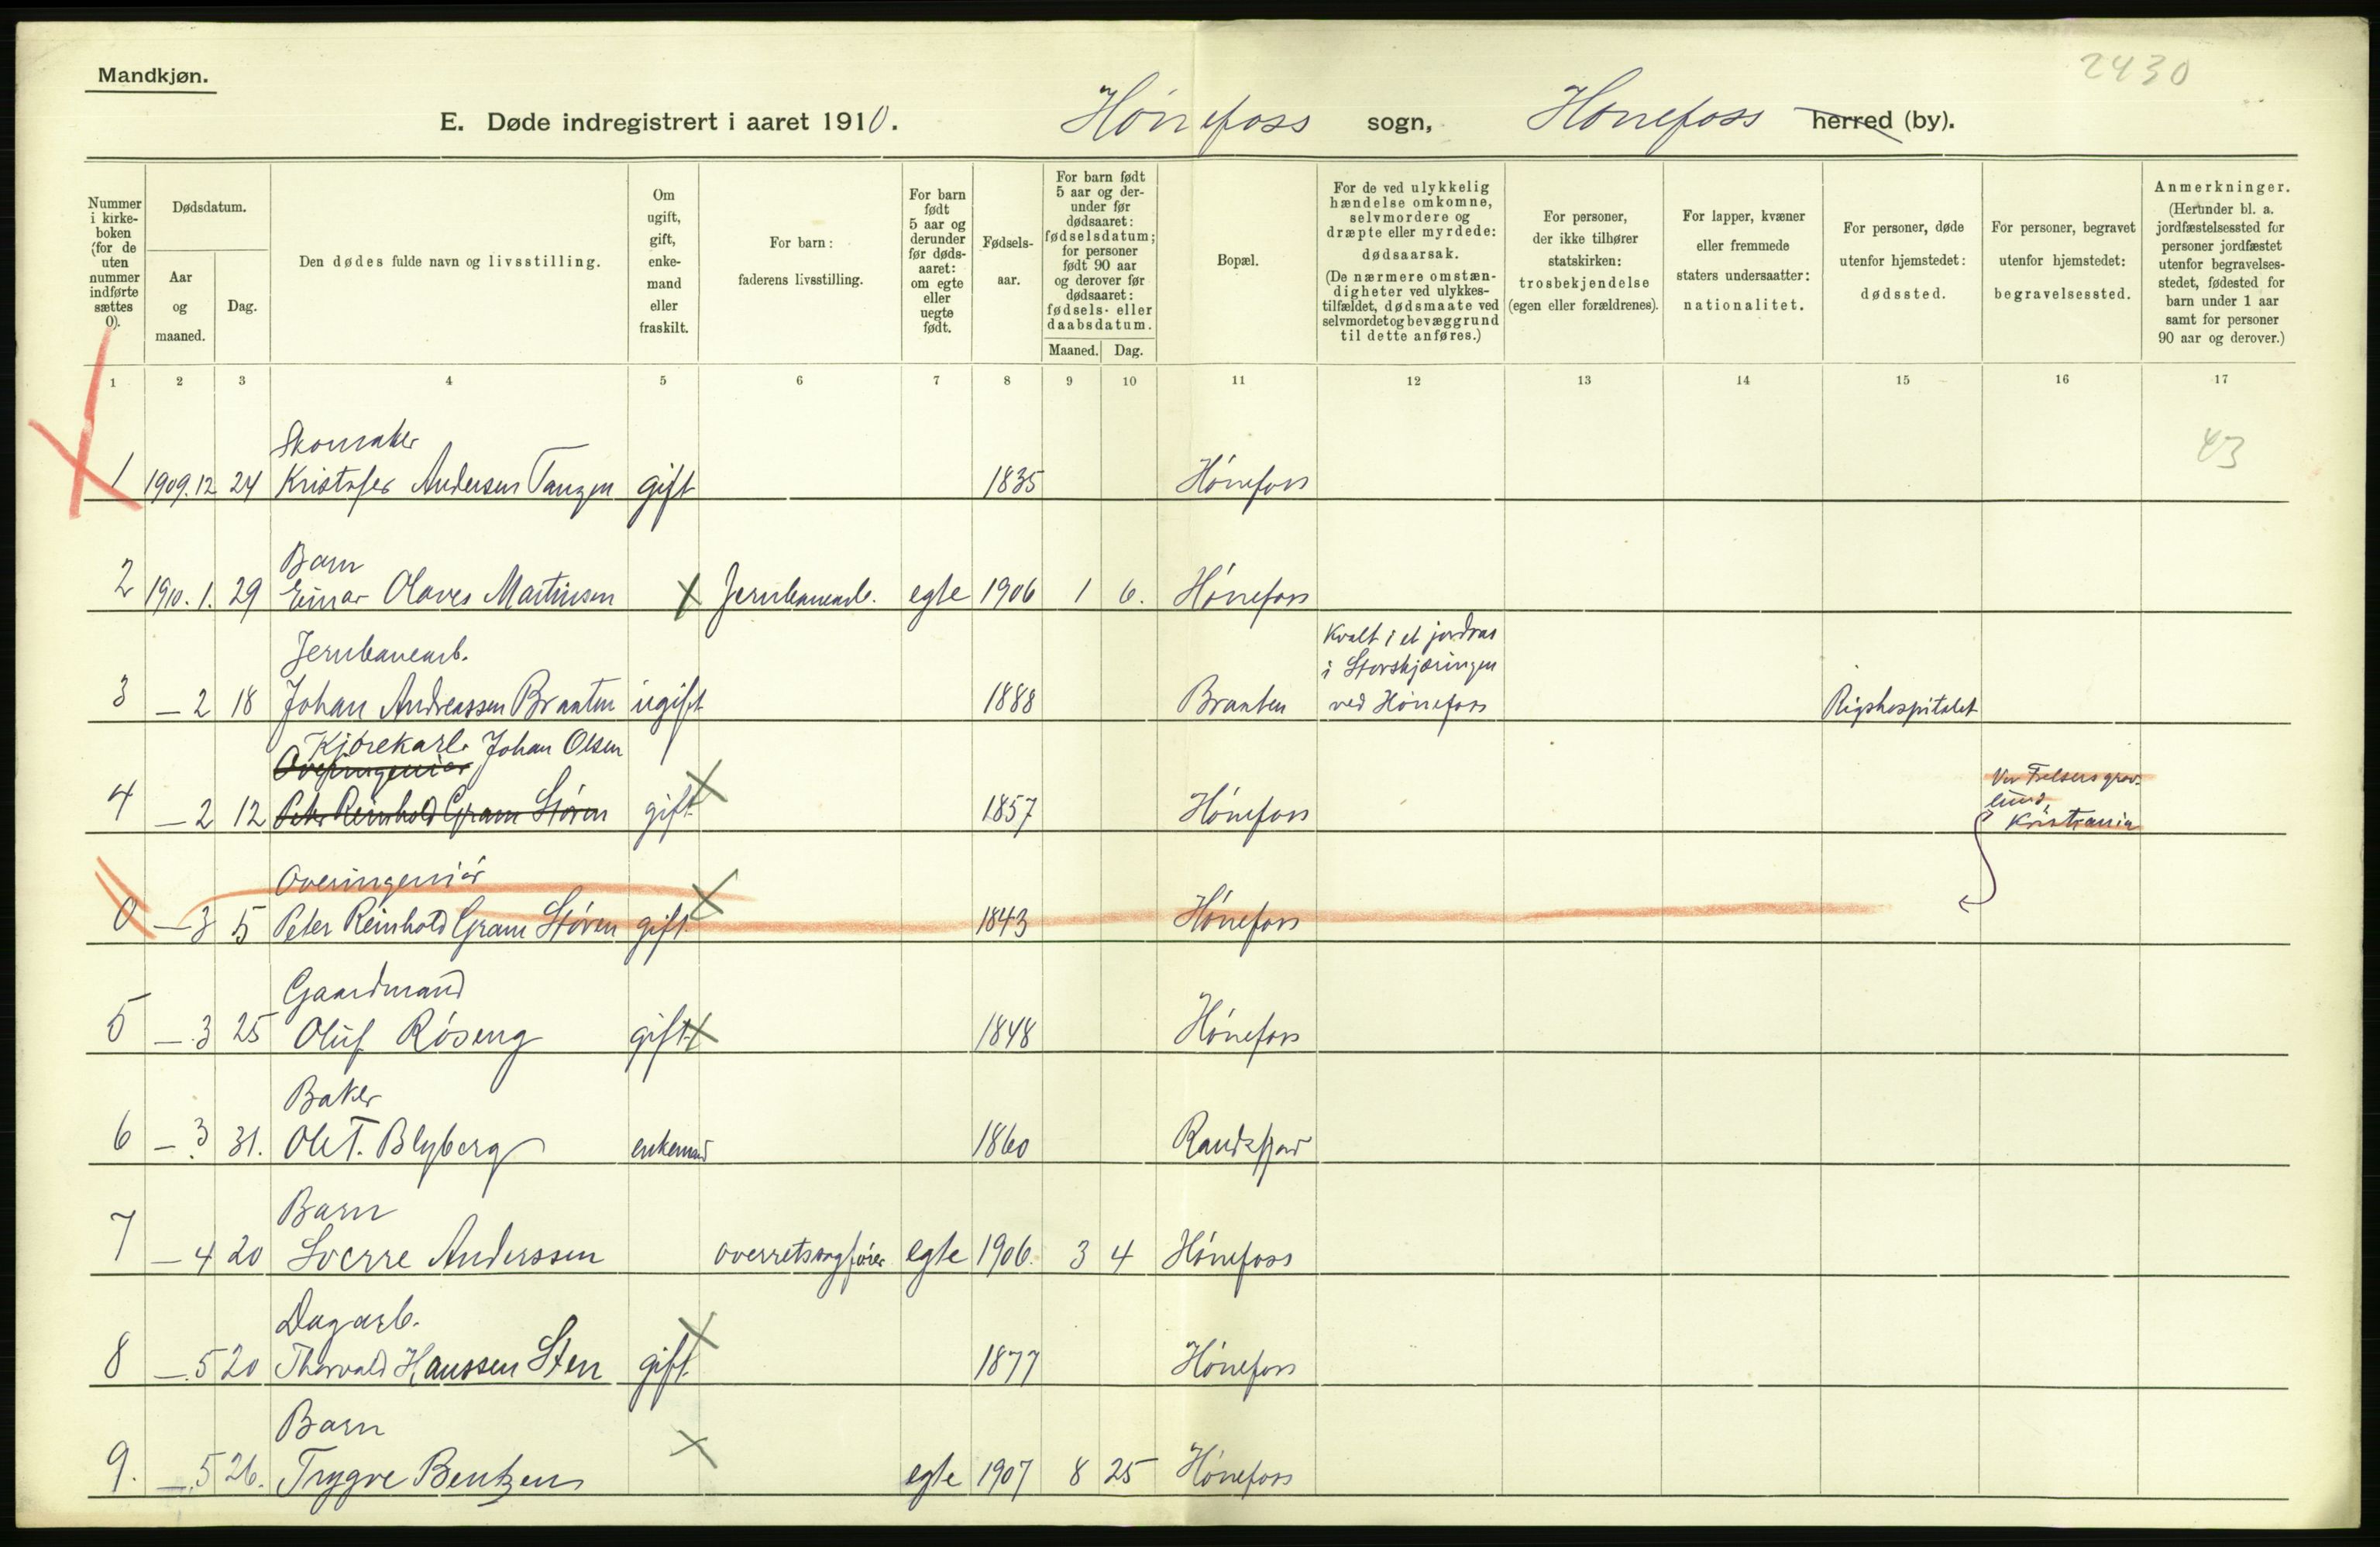 Mandkjøn.
2430
E. Døde indregistrert i aaret 1910. Hønefoss sogn, Hønefoss herred (by).
Nummer i kirke-boken (for de uten nummer indførte sættes 0).
Dødsdatum.
Aar og maaned.
Dag.
Den dødes fulde navn og livsstilling.
Om ugift, gift, enke-mand eller fraskilt.
For barn: faderens livsstilling.
For barn født 5 aar og derunder før døds-aaret: om egte eller uegte født.
Fødsels-aar.
For barn født 5 aar og der-under før dødsaaret: fødselsdatum; for personer født 90 aar og derover før dødsaaret: fødsels- eller daabsdatum.
Maaned. Dag.
Bopæl.
For de ved ulykkelig hændelse omkomne, selvmordere og dræpte eller myrdede: dødsaarsak. (De nærmere omstæn-digheter ved ulykkes-tilfældet, dødsmaate ved selvmordet og bevæggrund til dette anføres.)
For personer, der ikke tilhører statskirken: trosbekjendelse (egen eller forældrenes).
For lapper, kvæner eller fremmede staters undersaatter: nationalitet.
For personer, døde utenfor hjemstedet: dødssted.
For personer, begravet utenfor hjemstedet: begravelsessted.
Anmerkninger. (Herunder bl. a. jordfæstelsessted for personer jordfæstet utenfor begravelses-stedet, fødested for barn under 1 aar samt for personer 90 aar og derover.)
1 2 3 4 5 6 7 8 9 10 11 12 13 14 15 16 17
Skomaker
43
1 1909.12 24 Kristofer Andersen Tangen gift 1835 Hønefoss
Barn
2 1910.1. 29 Einar Olaves Martinsen Jernbanearb. egte 1906 1 6. Hønefoss
Jernbanearb.
Kvalt i et jordras
i Storskjæringen
3 — 2 18 Johan Andreassen Braaten ugift 1888 Braaten ved Hønefoss Rigshospitalet
Kjørekarl. Johan Olsen
Overingeniør
Vor Frelsers grav-
lund,
Kristiania
4 — 2 12 Peter Reinhold Gram Støren gift 1857 Hønefoss
Overingeniør
0 — 3 5 Peter Reinhold Gram Støren gift 1843 Hønefoss
Gaardmand
5 — 3 25 Oluf Røseng gift 1848 Hønefoss
Baker
6 — 3 31. Ole T. Blyberg enkemand 1860 Randsfjord
Barn
7 — 4 20 Sverre Anderssen overretssagfører egte 1906. 3 4 Hønefoss
Dagarb.
8 — 5 20 Thorvald Hanssen Sten gift 1877 Hønefoss
Barn
9. — 5 26. Trygve Bentzen egte 1907 8 25 Hønefoss